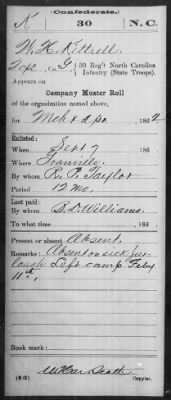 Confederate.
K 30 N.C.
W. H. Kittrell
Co. G, 30 Reg't North Carolina
Infantry (State Troops)
Appears on
Company Muster Roll
of the organization named above,
for Mch & Apr, 1862
Enlisted:
When Sept 7, 186
Where Granville
By whom R. P. Taylor
Period 12 Mo.
Last paid:
By whom B. D. Williams.
To what time , 186
Present or absent Absent.
Remarks: Absent on sick fur-
lough Left camp Feby
11th,
Book mark:
(642)
Copyist.